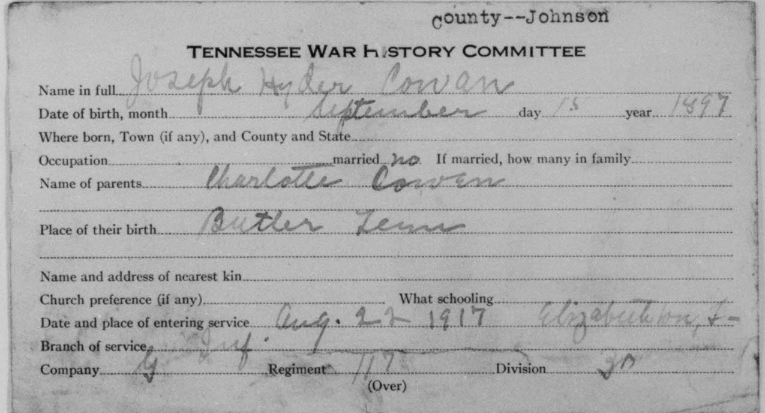 County--Johnson
TENNESSEE WAR HISTORY COMMITTEE
Name in full Joseph Hyder Cowan
Date of birth, month September day 15 year 1897
Where born, Town (if any), and County and State
Occupation married no If married, how many in family
Name of parents Charlotte Cowan
Place of their birth Butler Tenn
Name and address of nearest kin
Church preference (if any) What schooling
Date and place of entering service Aug. 22 1917 Elizabethton,
Branch of service Inf.
Company G Regiment 117 Division 30
(Over)